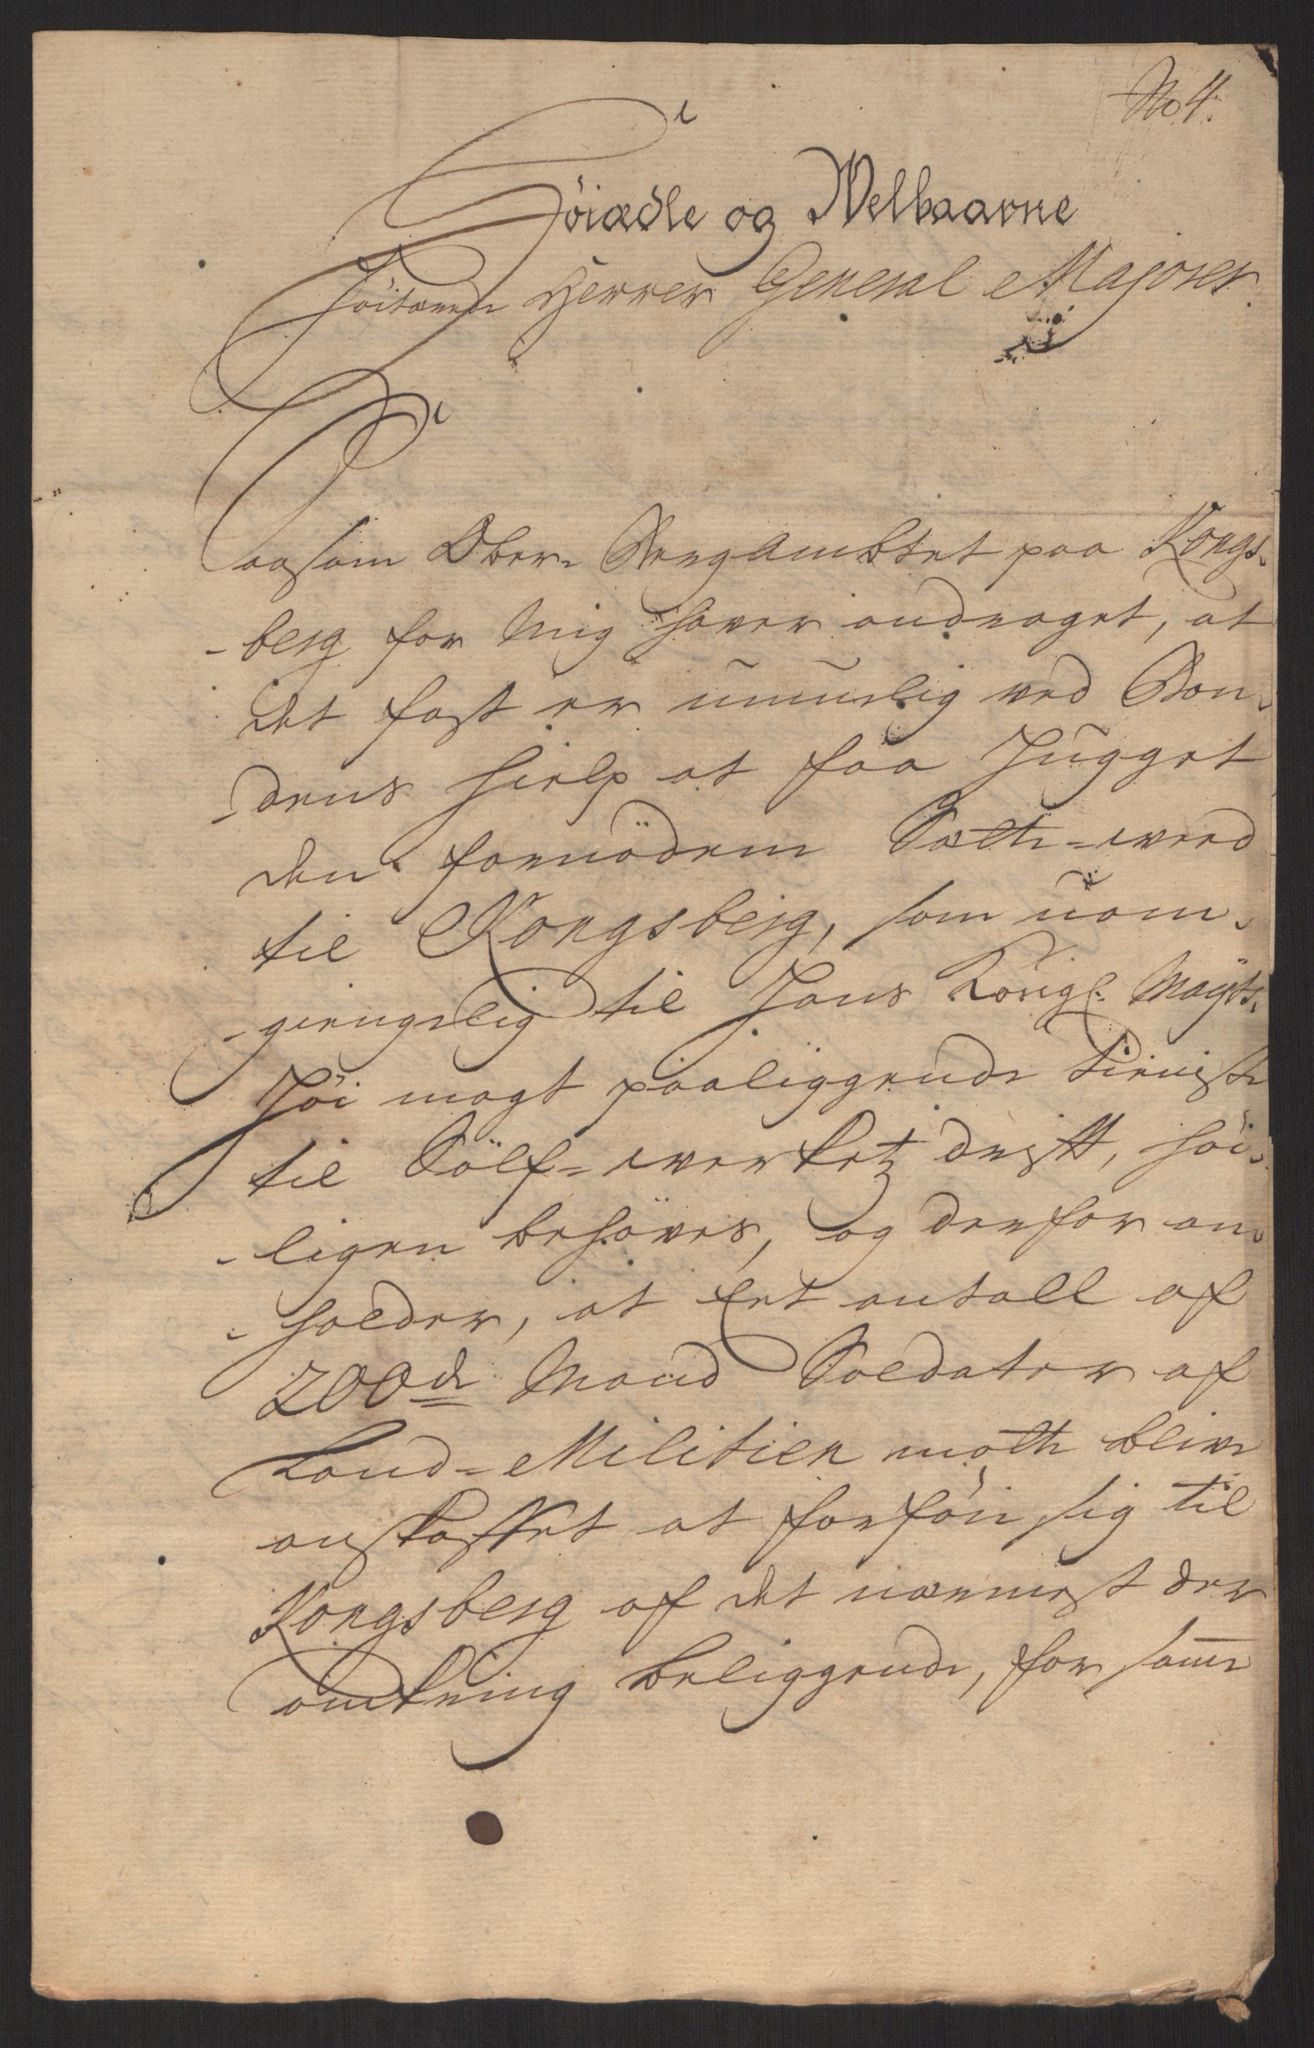 No 4.
Höiædle og Welbaarne
Höitærede Herrer General Majorer
Saasom Ober-Bergambtet paa Kongs-
-berg for Mig haver andraget, at
det fast er umuelig ved Bon-
-dens hielp at faa Hugget
den fornödene Sætte-weed
til Kongsberg, som uom-
-giengelig til Hans Kongl: Mayts.
Höi magt paaliggende tieniste
til Sölf-werketz drifft, höi-
-ligen behöves, og derfor an-
-holder, at Eet antall af
200de Mand Soldater af
Land-Militien motte blive
anskaffet at forföie sig til
Kongsberg af det nærmest der
omkring beliggende, for samme